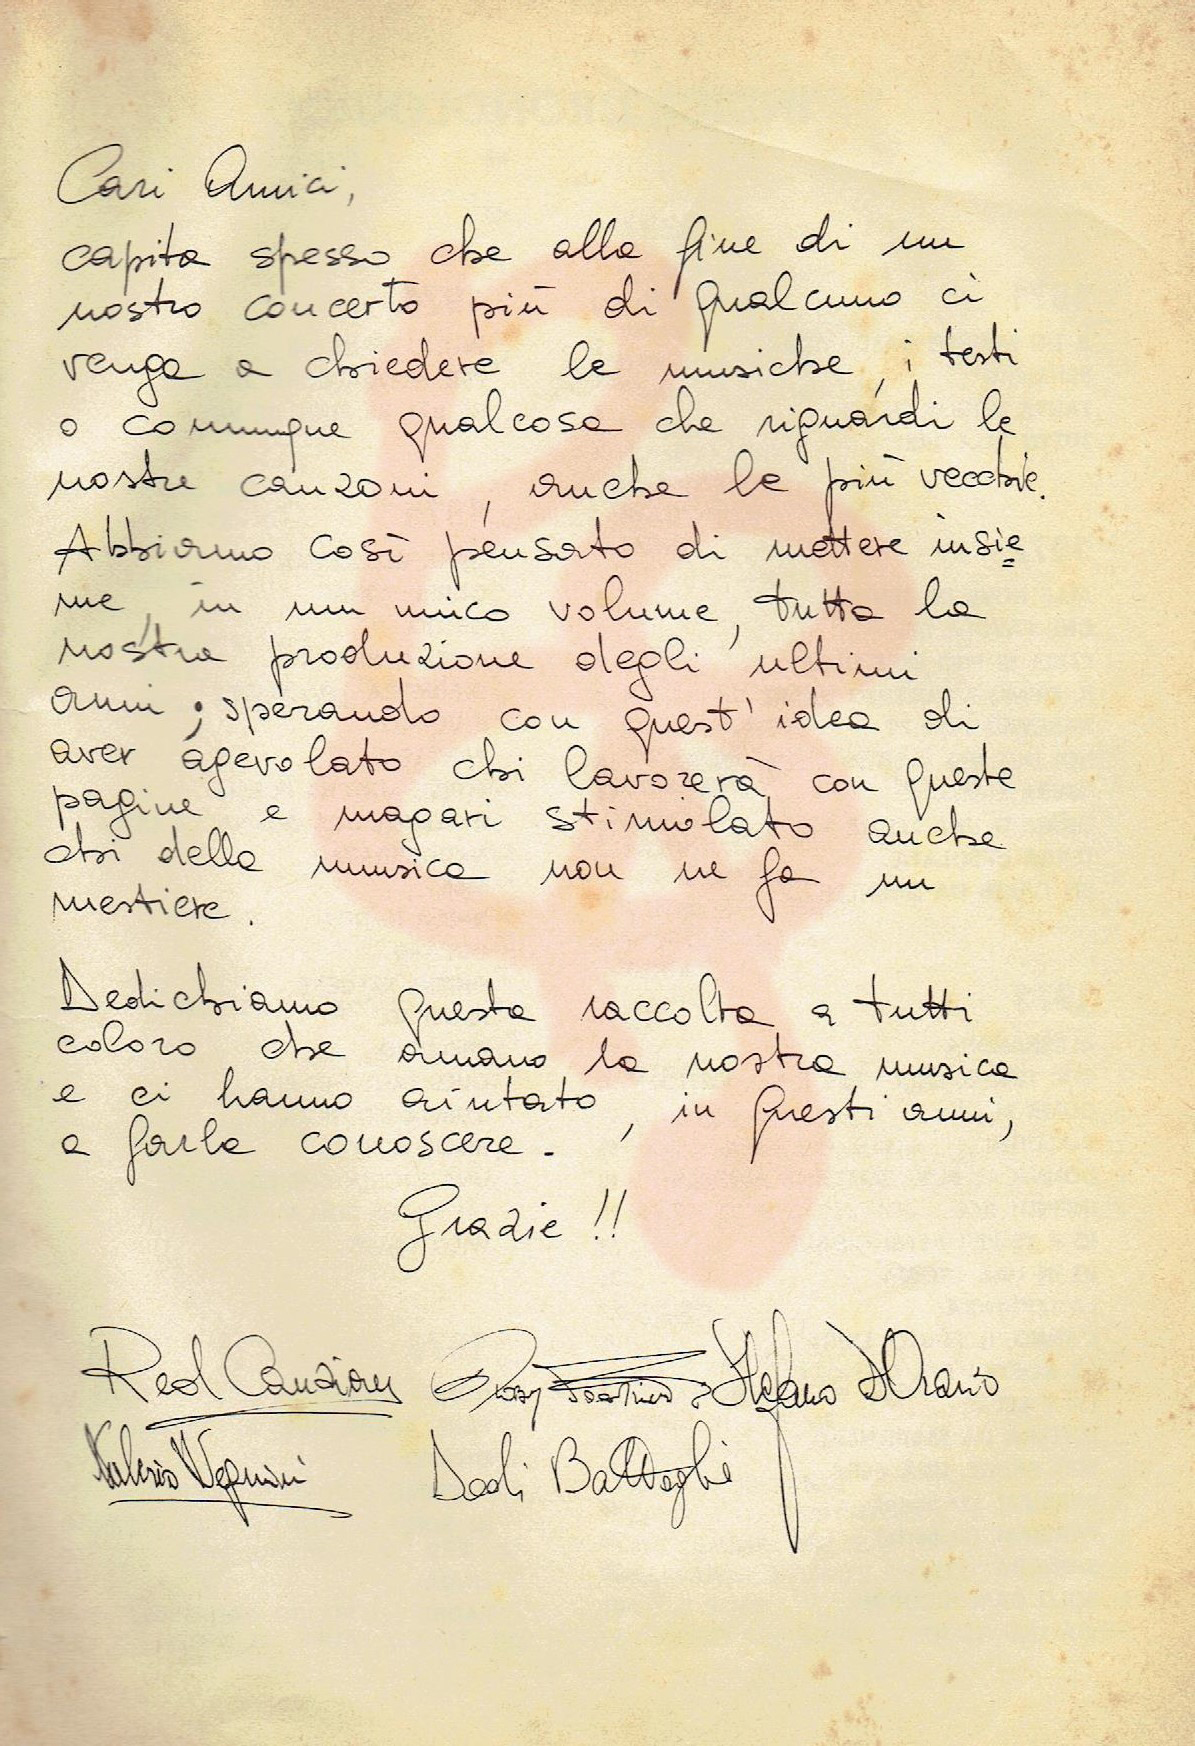 Cari Amici,
capita spesso che alla fine di un
nostro concerto più di qualcuno ci
venga a chiedere le musiche, i testi
o comunque qualcosa che riguardi le
nostre canzoni, anche le più vecchie.
Abbiamo così pensato di mettere insie=
me, in un unico volume, tutta la
nostra produzione degli ultimi
anni; sperando con quest'idea di
aver agevolato chi lavorerà con queste
pagine e magari stimolato anche
chi della musica non ne fa un
mestiere.
Dedichiamo questa raccolta a tutti
coloro che amano la nostra musica
e ci hanno aiutato, in questi anni,
a farla conoscere.
Grazie!!
Red Canzian Roby Facchinetti Stefano D'Orazio
Valerio Negrini Dodi Battaglia